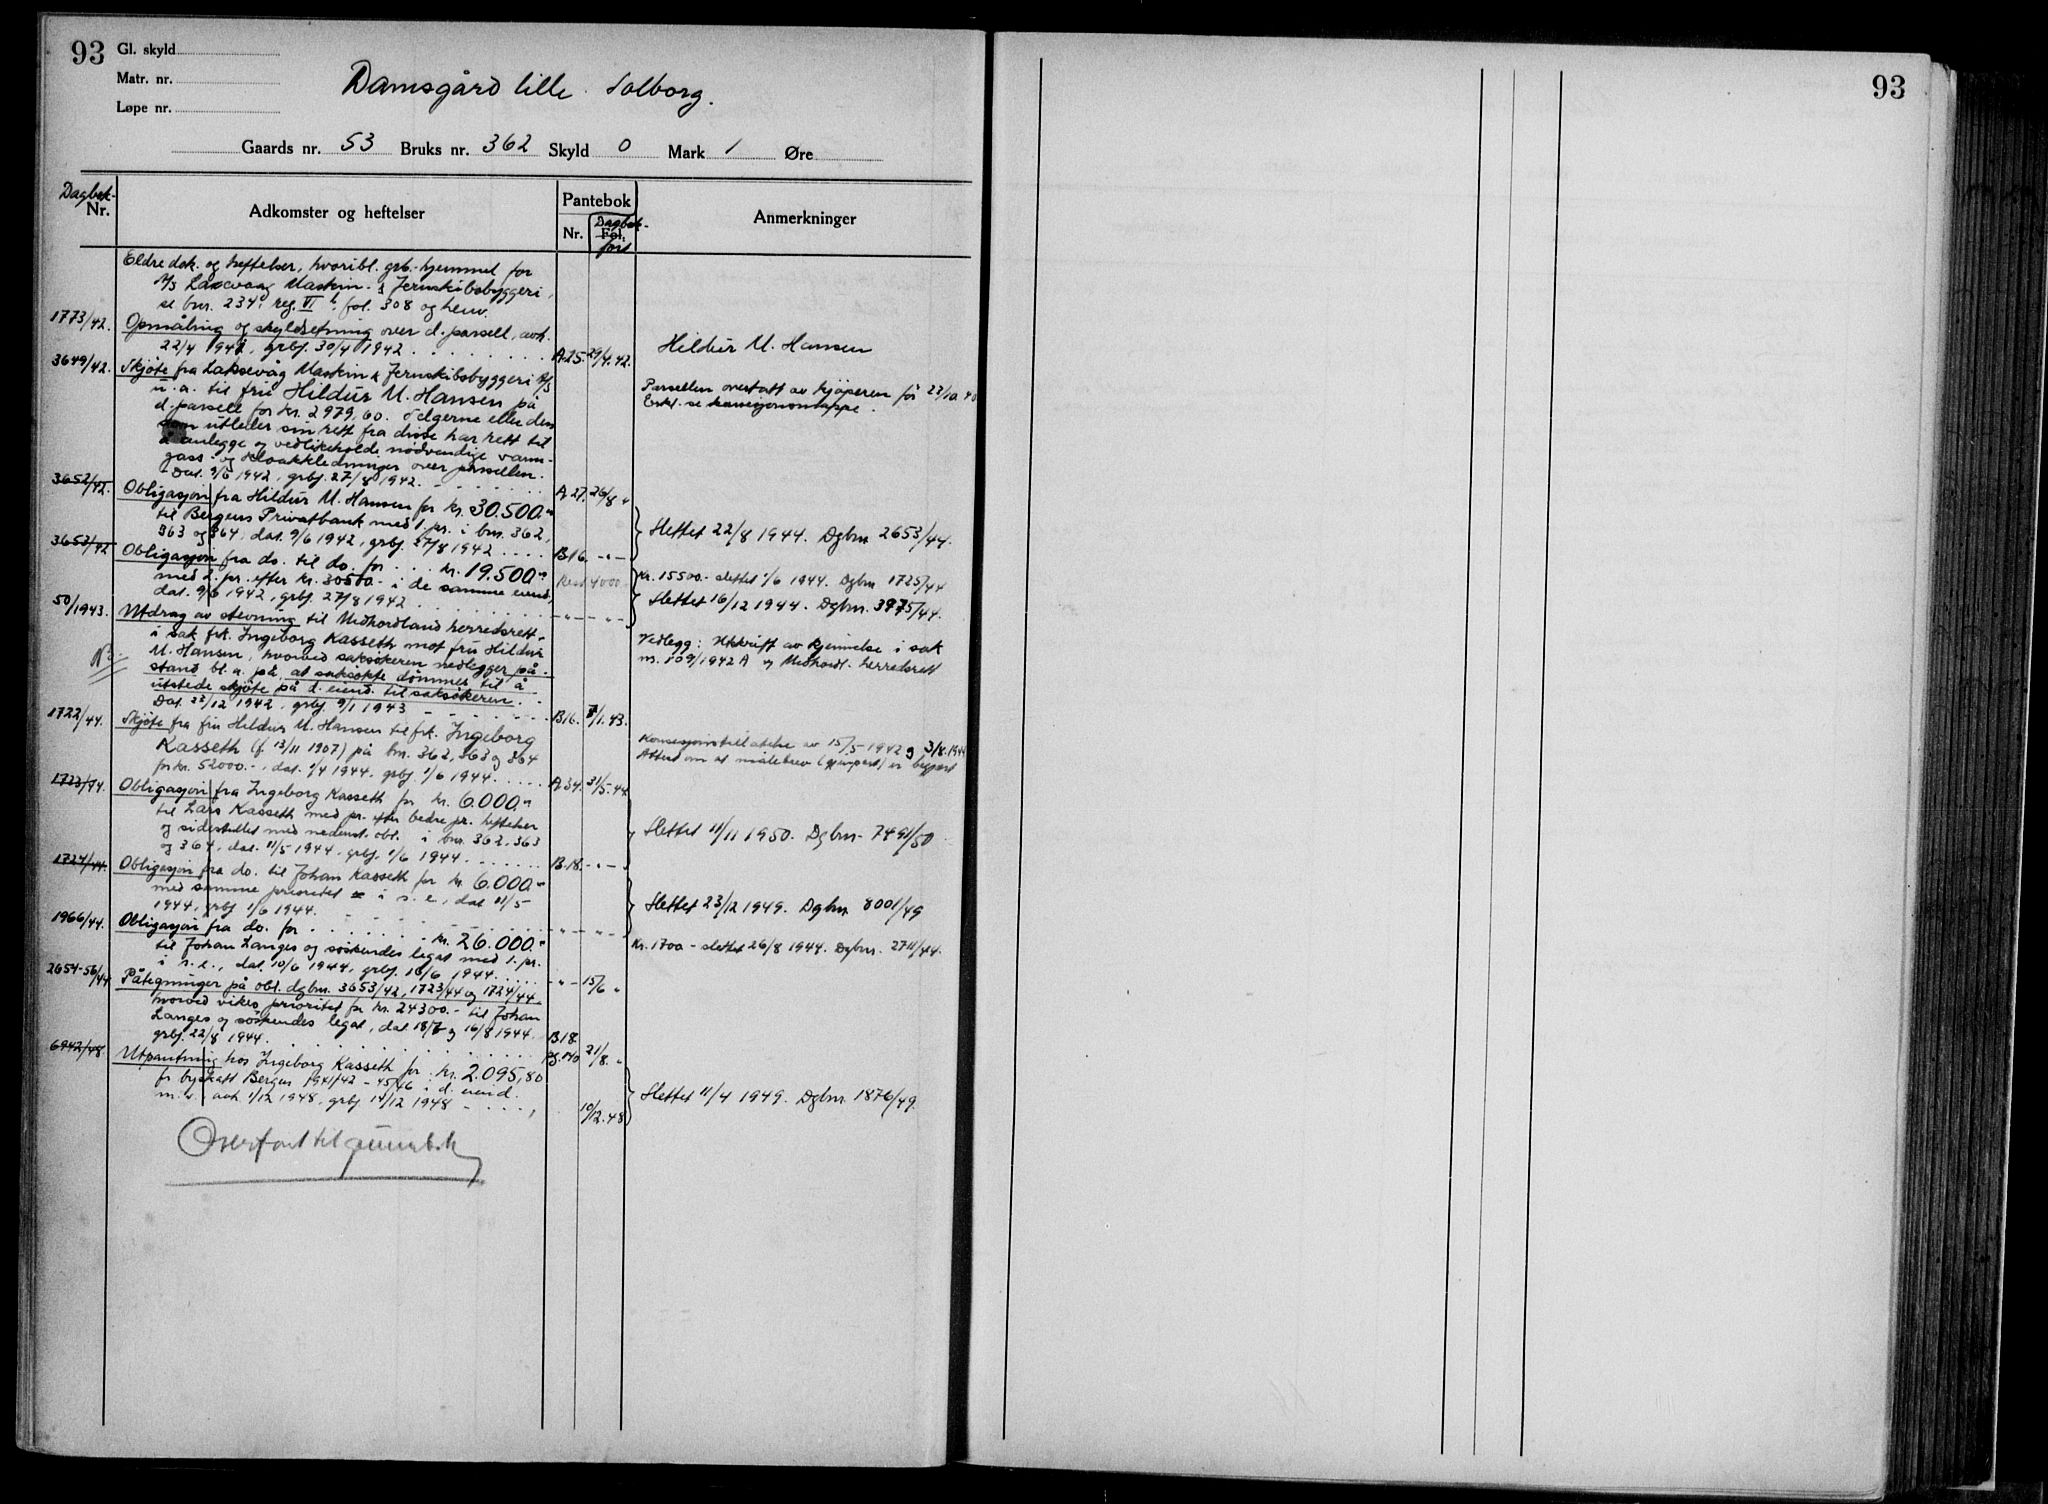 93
Gl. skyld
Matr. nr.
Løpe nr.
Damsgård lille Solborg.
Gaards nr. 53 Bruks nr. 362 Skyld 0 Mark 1 Øre
Dagbok-Nr.
Adkomster og heftelser
Pantebok
Nr.
Fol. Dagbok-ført
Anmerkninger
Eldre dok. og heftelser, hvoribl. grb.-hjemmel for
A/S Laxevaag Maskin- & Jernskibsbyggeri,
se bnr. 234, reg. VI fol. 308 og henv.
1773/42. Opmåling og skyldsetning over d. parsell, avh.
22/4 1942, grbf. 30/4 1942 A.25. 29/4.42.
Hildur M. Hansen
3649/42. Skjøte fra Laksevåg Maskin & Jernskibsbyggeri A/S
u. a. til fru Hildur M. Hansen på
d. parsell for kr. 2979,60. Selgerne eller den
som utleder sin rett fra disse har rett til
å anlegge og vedlikeholde nødvendige vann-
gass- og kloakkledninger over parsellen.
Dat. 9/6 1942, grbf. 27/8 1942. A.27. 26/8 "
Parsellen overtatt av kjøperen før 22/10 40
Erkl. se konsesjonsmappe.
3652/42. Obligasjon fra Hildur M. Hansen for kr. 30.500.-
til Bergens Privatbank med 1. pr. i bnr. 362,
363 og 364, dat. 9/6 1942, grbf. 27/8 1942 B.16. - " -
Slettet 22/8 1944. Dgbnr. 2653/44.
3653/42 Obligasjon fra do. til do. for kr. 19.500.-
med 2. pr. efter kr. 30500.- i de samme eiend.,
dat. 9/6 1942, grbf. 27/8 1942 - " - - " -
Rest 4000.-
Kr. 15500.- slettet 1/6 1944. Dgbnr 1725/44
Slettet 16/12 1944. Dgbnr. 3975/44.
50/1943. Utdrag av stevning til Midhordland herredsrett
i sak frk. Ingeborg Kasseth mot fru Hildur
M. Hansen, hvorved saksøkeren nedlegger på-
stand bl. a. på, at saksøkte dømmes til å
utstede skjøte på d. eiend. til saksøkeren.
Dat. 22/12 1942, grbf. 9/1 1943 B16. 7/1.43.
Vedlegg: Utskrift av kjennelse i sak
nr. 109/1942 A v/ Midhordl. herredsrett
1722/44. Skjøte fra fru Hildur M. Hansen til frk. Ingeborg
Kasseth (f. 13/11 1907) på bnr. 362, 363 og 364
for kr. 52000.-, dat. 1/4 1944, grbf. 1/6 1944. A.34. 31/5.44.
Konsesjonstillatelse av 15/5-1942 og 3/8.1944
Attest om at målebrev (gjenpart) er begjært
1723/44. Obligasjon fra Ingeborg Kasseth for kr. 6.000.-
til Lars Kasseth med pr. efter bedre pr. heftelser
og sidestillet med nedenst. obl. i bnr. 362, 363
og 364, dat. 11/5 1944, grbf. 1/6 1944. B.18. - " -
Slettet 11/11 1950. Dgbnr. 7491/50
1724/44. Obligasjon fra do. til Johan Kasseth for kr. 6.000.-
med samme prioritet i s. e., dat. 11/5
1944, grbf. 1/6 1944. - " - - " -
Slettet 23/12 1949. Dgbnr. 8001/49
1966/44. Obligasjon fra do. for kr. 26.000.-
til Johan Langes og søskendes legat med 1. pr.
i s. e., dat. 10/6 1944, grbf. 16/6 1944. - " - 15/6 "
Kr. 1700.- slettet 26/8 1944. Dgbnr. 2711/44.
2654-56/44 Påtegninger på obl. dgbnr. 3653/42, 1723/44 og 1724/44
hvorved vikes prioritet for kr. 24300.- til Johan
Langes og søskendes legat, dat. 18/7 og 16/8 1944.
grbf. 22/8 1944. B.18. 21/8. "
6942/48. Utpantning hos Ingeborg Kasseth for kr. 2.095,80
for byskatt Bergen 1941/42 - 45/46 i d. eiend.
m. v., avh. 1/12 1948, grbf. 14/12 1948 10/12.48
Slettet 11/4 1949. Dgbnr. 1876/49.
Overført til grunnbok
93